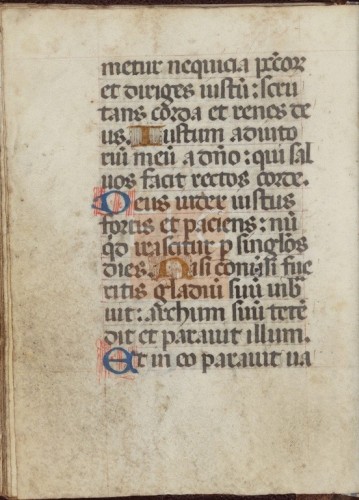 metur nequicia pctor̄
et diriges iustū: scru
tans corda et renes de
us. Iustum adiuto
riū meū a dn̄o: qui sal
uos facit rectos corde.
Deus iudex iustus
fortis et paciens: nū
qd irascitur p singl̄os
dies. Nisi conūsi fue
ritis gladiū suū uib
uit: archum suū tetē
dit et parauit illum.
Et in eo parauit ua